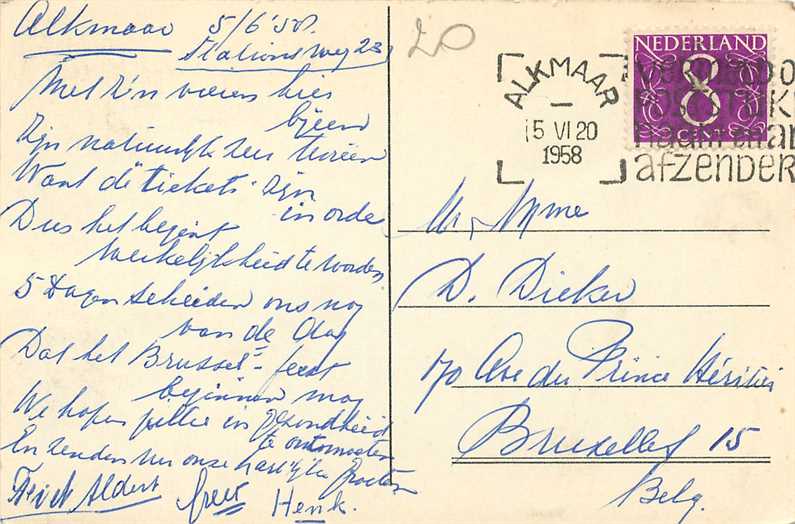 Alkmaar 5/6 '58.
Stationsweg 23
Met z'n vieren hier
bijeen
Zijn natuurlijk zeer tevreên
Want de "tickets" zijn
in orde
Dus het begint
werkelijkheid te worden
5 Dagen scheiden ons nog
van de dag
Dat het Brussel-feest
beginnen mag
We hopen jullie in gezondheid
te ontmoeten
En zenden U onze hartelijke groeten
Aldert Greet Henk.
20
ALKMAAR
15 VI 20
1958
afzender
NEDERLAND
8
CENT
Mr, Mme
D. Dieker
170 Ave du Prince Héritier
Bruxelles 15
Belg.